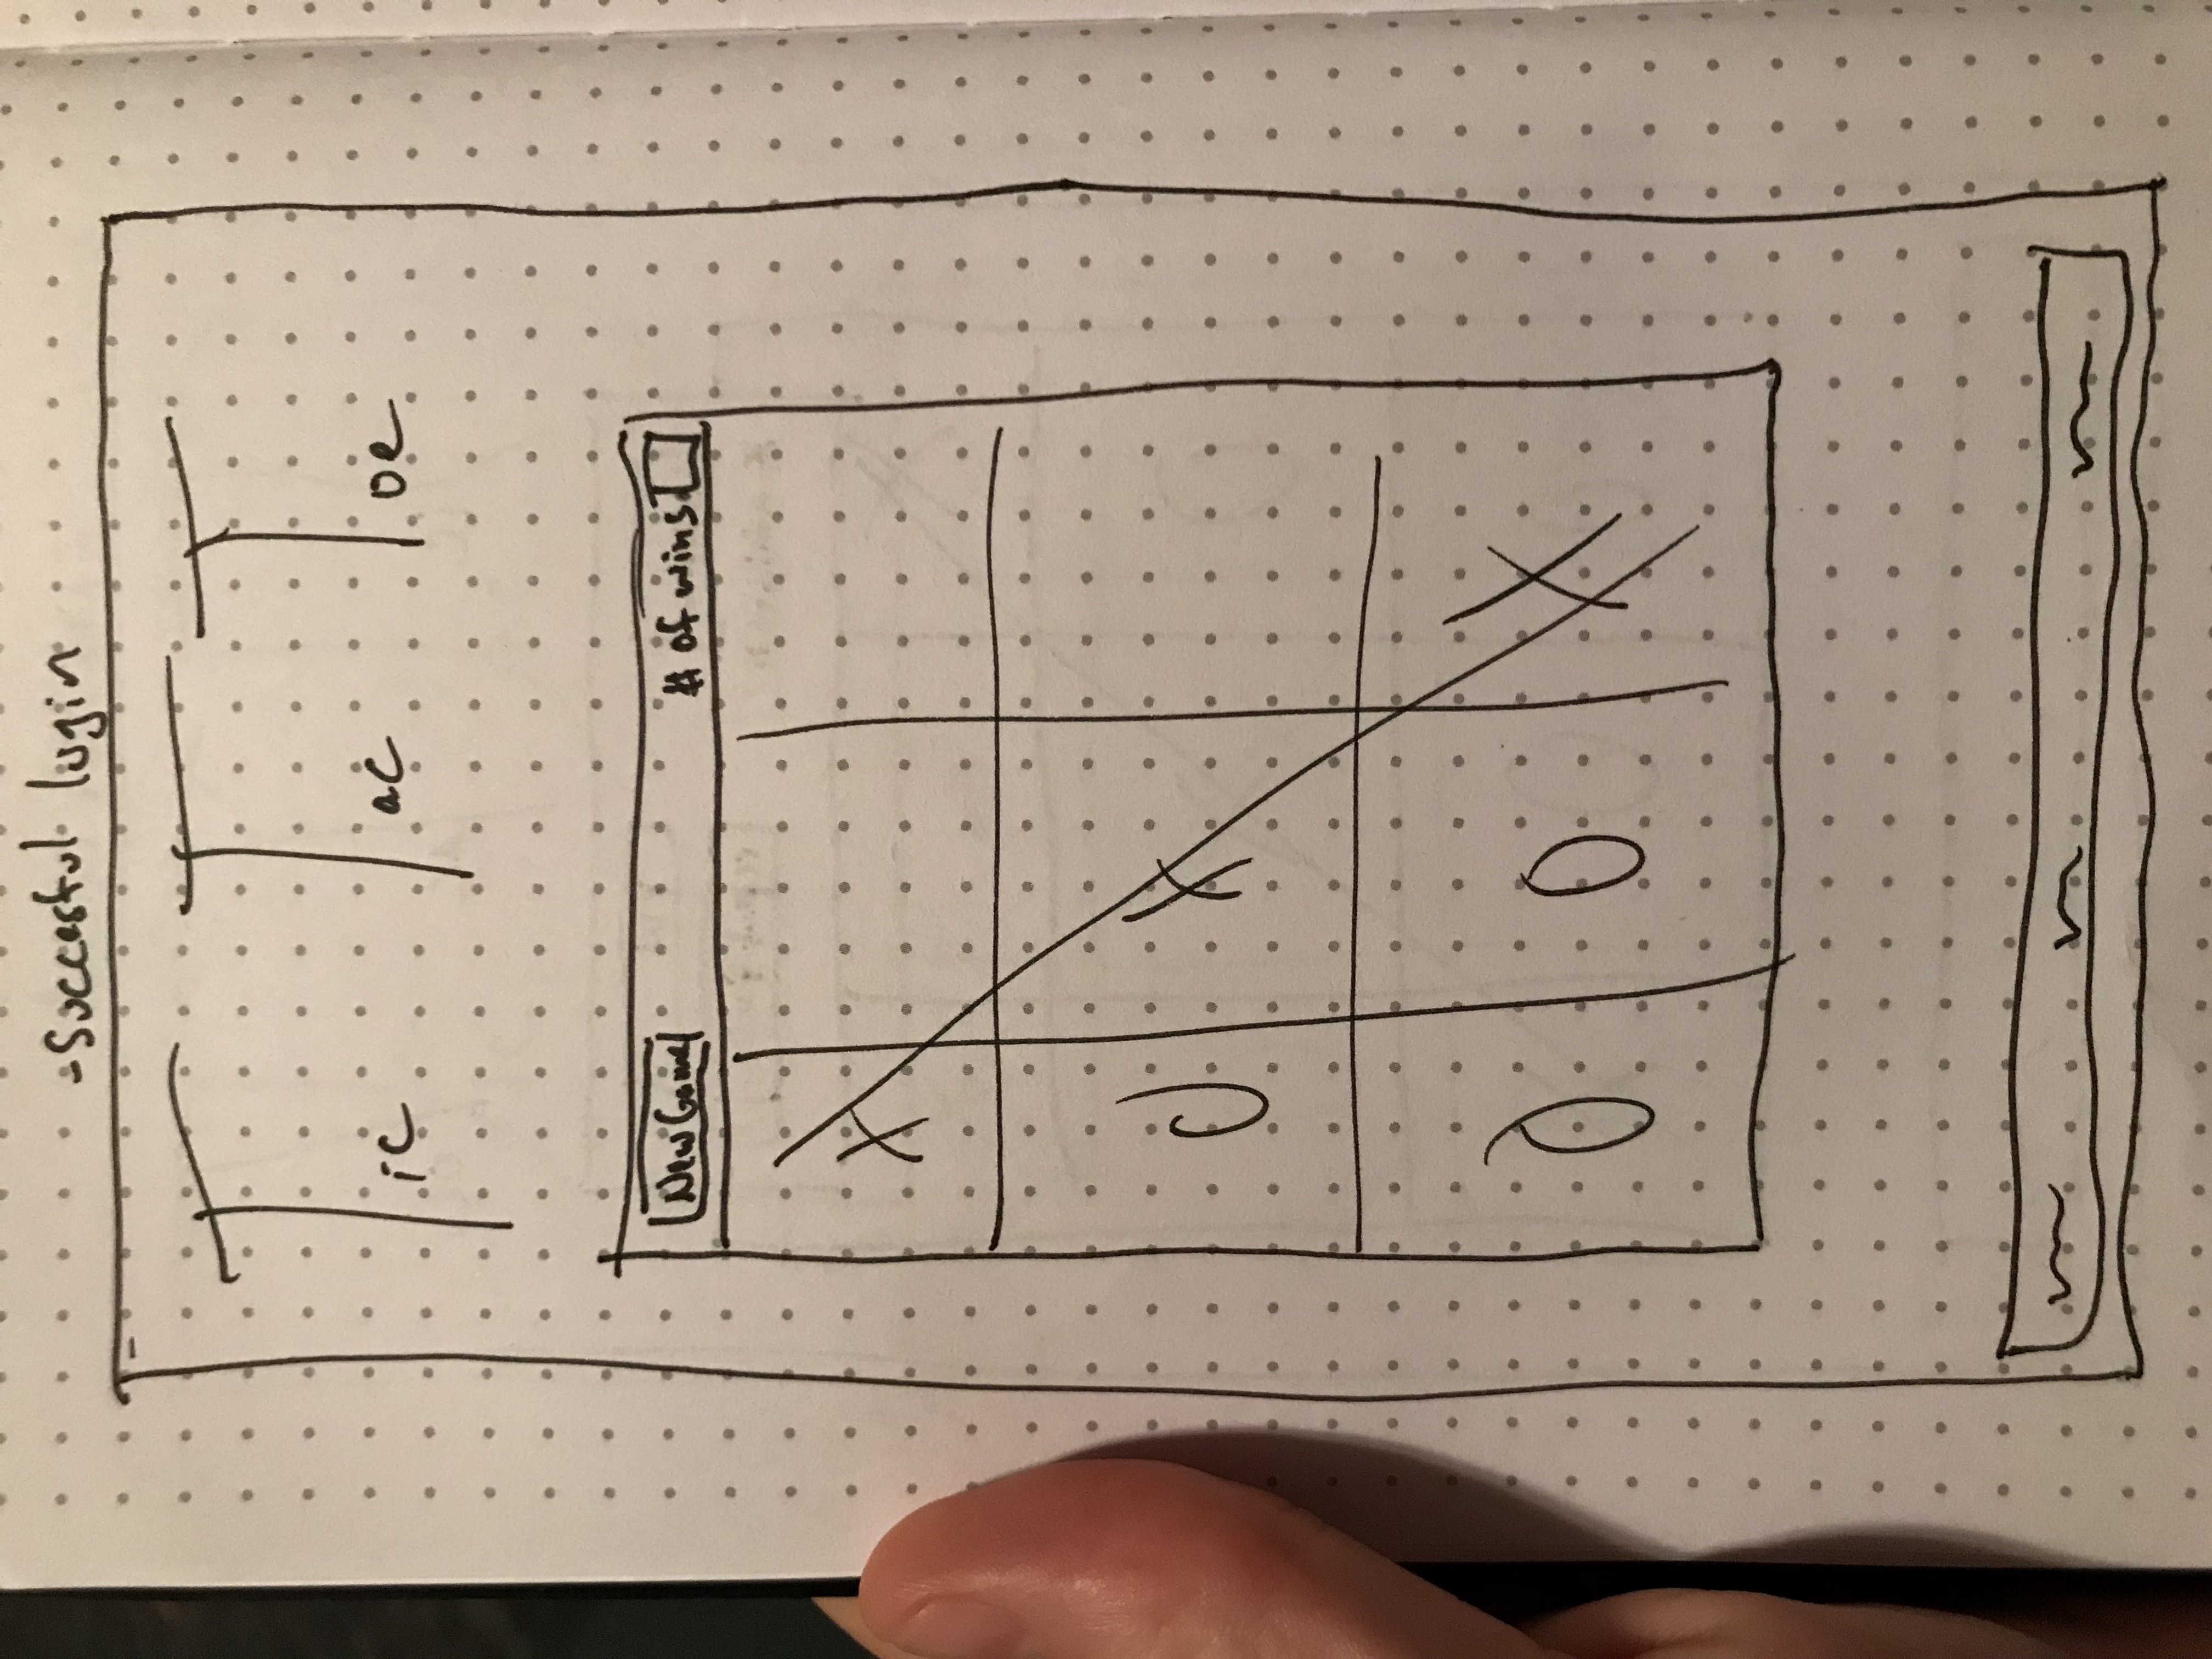 -Succesful login
Tic Tac Toe
New Game # of wins
X
O X
O O X